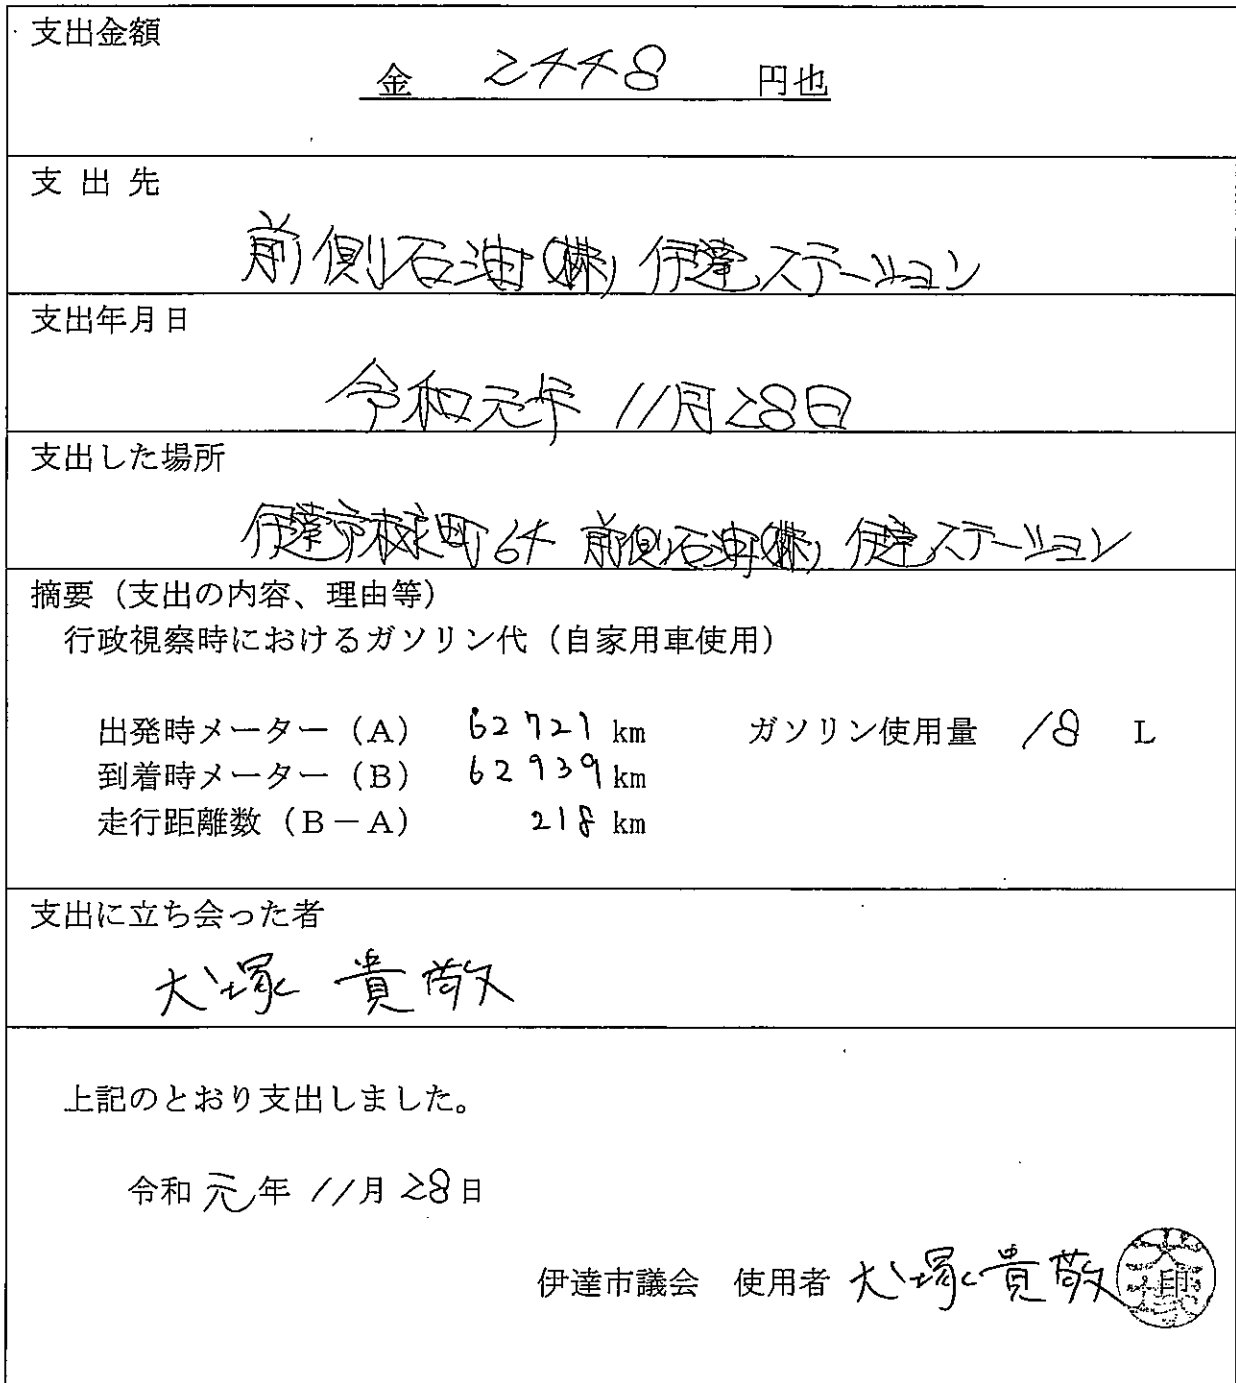 支出金額
金 2448 円也
支出先
前側石油(株) 伊達ステーション
支出年月日
令和元年 11月28日
支出した場所
伊達市末永町64 前側石油(株) 伊達ステーション
摘要（支出の内容、理由等）
行政視察時におけるガソリン代（自家用車使用）
出発時メーター（A） 62721 km ガソリン使用量 18 L
到着時メーター（B） 62939 km
走行距離数（B－A） 218 km
支出に立ち会った者
大塚 貴敬
上記のとおり支出しました。
令和 元 年 11月 28日
伊達市議会 使用者 大塚 貴敬